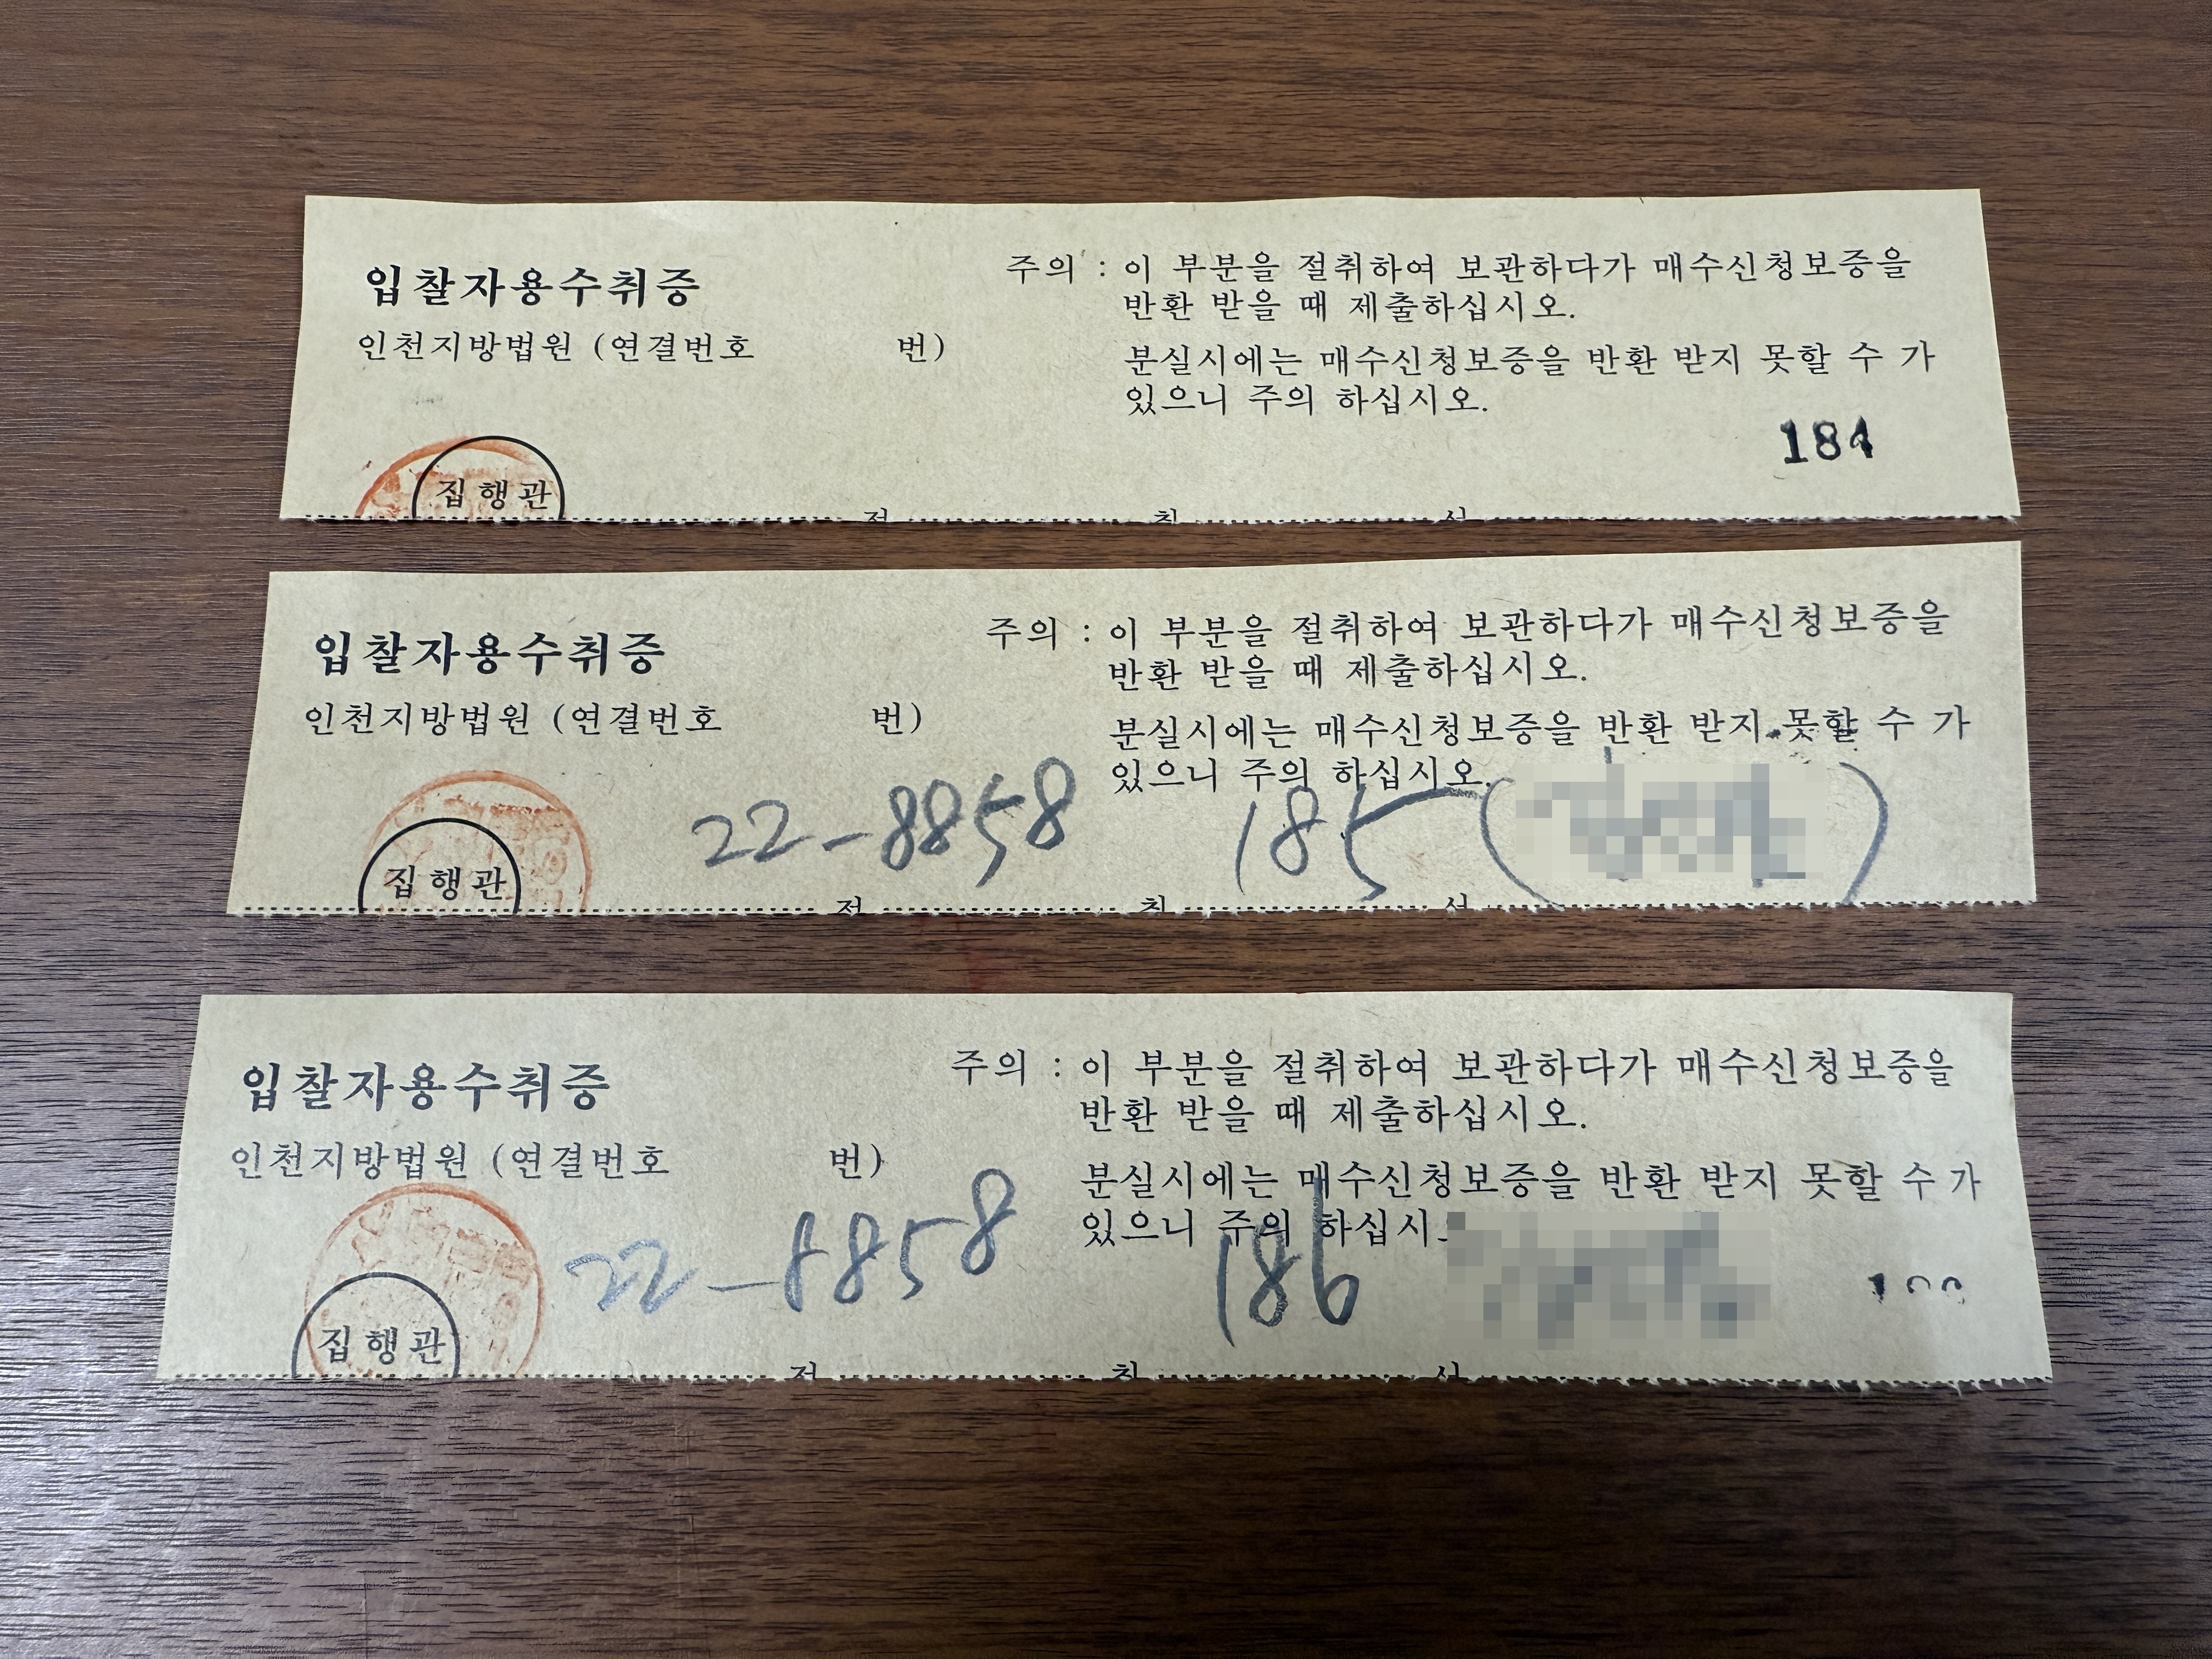 입찰자용수취증
인천지방법원 (연결번호 번)
주의 : 이 부분을 절취하여 보관하다가 매수신청보증을
반환 받을 때 제출하십시오.
분실시에는 매수신청보증을 반환 받지 못할 수 가
있으니 주의 하십시오.
184
집행관
입찰자용수취증
인천지방법원 (연결번호 번)
주의 : 이 부분을 절취하여 보관하다가 매수신청보증을
반환 받을 때 제출하십시오.
분실시에는 매수신청보증을 반환 받지 못할 수 가
있으니 주의 하십시오.
22-8858 185
집행관
입찰자용수취증
인천지방법원 (연결번호 번)
주의 : 이 부분을 절취하여 보관하다가 매수신청보증을
반환 받을 때 제출하십시오.
분실시에는 매수신청보증을 반환 받지 못할 수 가
있으니 주의 하십시
22-8858 186
집행관